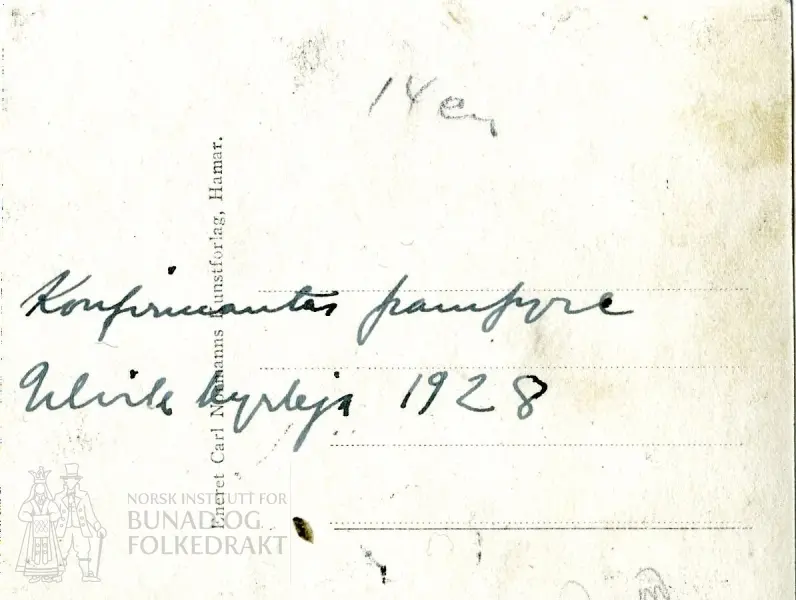 14 cm
Eneret Carl Normanns Kunstforlag, Hamar.
Konfirmantar framfyre
Ulvik kyrkja 1928
NORSK INSTITUTT FOR
BUNAD OG
FOLKEDRAKT